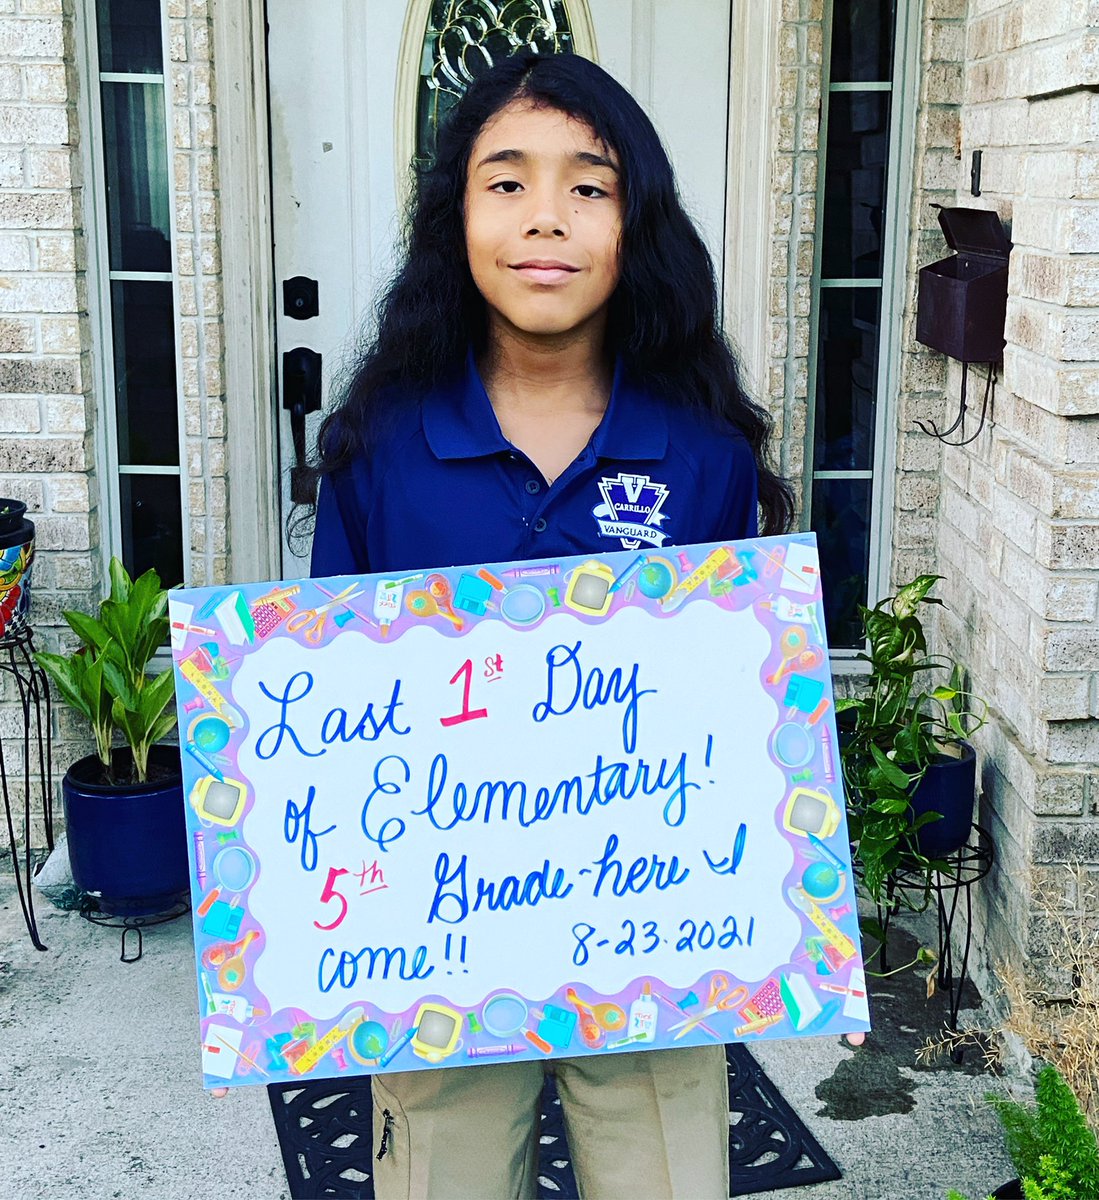 V
CARRILLO
VANGUARD
Last 1st Day
of Elementary!
5th Grade-here I
come!! 8-23-2021